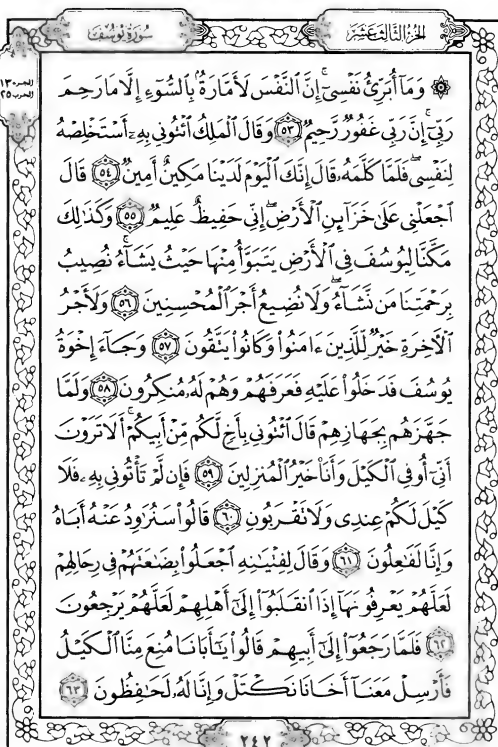 سُورَةُ يُوسُفَ
الجُزْءُ الثَّالِثَ عَشَرَ
الجزء ١٣
الحزب ٢٥
۞ وَمَآ أُبَرِّئُ نَفْسِىٓۚ إِنَّ ٱلنَّفْسَ لَأَمَّارَةُۢ بِٱلسُّوٓءِ إِلَّا مَارَحِمَ
رَبِّىٓۚ إِنَّ رَبِّى غَفُورٌ رَّحِيمٌ ٥٣ وَقَالَ ٱلْمَلِكُ ٱئْتُونِى بِهِۦٓ أَسْتَخْلِصْهُ
لِنَفْسِىۖ فَلَمَّا كَلَّمَهُۥ قَالَ إِنَّكَ ٱلْيَوْمَ لَدَيْنَا مَكِينٌ أَمِينٌ ٥٤ قَالَ
ٱجْعَلْنِى عَلَىٰ خَزَآئِنِ ٱلْأَرْضِۖ إِنِّى حَفِيظٌ عَلِيمٌ ٥٥ وَكَذَٰلِكَ
مَكَّنَّا لِيُوسُفَ فِى ٱلْأَرْضِ يَتَبَوَّأُ مِنْهَا حَيْثُ يَشَآءُۚ نُصِيبُ
بِرَحْمَتِنَا مَن نَّشَآءُۖ وَلَا نُضِيعُ أَجْرَ ٱلْمُحْسِنِينَ ٥٦ وَلَأَجْرُ
ٱلْأَخِرَةِ خَيْرٌ لِّلَّذِينَ ءَامَنُوا۟ وَكَانُوا۟ يَتَّقُونَ ٥٧ وَجَآءَ إِخْوَةُ
يُوسُفَ فَدَخَلُوا۟ عَلَيْهِ فَعَرَفَهُمْ وَهُمْ لَهُۥ مُنكِرُونَ ٥٨ وَلَمَّا
جَهَّزَهُم بِجَهَازِهِمْ قَالَ ٱئْتُونِى بِأَخٍ لَّكُم مِّنْ أَبِيكُمْۚ أَلَا تَرَوْنَ
أَنِّىٓ أُوفِى ٱلْكَيْلَ وَأَنَا۠ خَيْرُ ٱلْمُنزِلِينَ ٥٩ فَإِن لَّمْ تَأْتُونِى بِهِۦ فَلَا
كَيْلَ لَكُمْ عِندِى وَلَا تَقْرَبُونِ ٦٠ قَالُوا۟ سَنُرَٰوِدُ عَنْهُ أَبَاهُ
وَإِنَّا لَفَٰعِلُونَ ٦١ وَقَالَ لِفِتْيَٰنِهِ ٱجْعَلُوا۟ بِضَٰعَتَهُمْ فِى رِحَالِهِمْ
لَعَلَّهُمْ يَعْرِفُونَهَآ إِذَا ٱنقَلَبُوٓا۟ إِلَىٰٓ أَهْلِهِمْ لَعَلَّهُمْ يَرْجِعُونَ
٦٢ فَلَمَّا رَجَعُوٓا۟ إِلَىٰٓ أَبِيهِمْ قَالُوا۟ يَٰٓأَبَانَا مُنِعَ مِنَّا ٱلْكَيْلُ
فَأَرْسِلْ مَعَنَآ أَخَانَا نَكْتَلْ وَإِنَّا لَهُۥ لَحَٰفِظُونَ ٦٣
٢٤٢